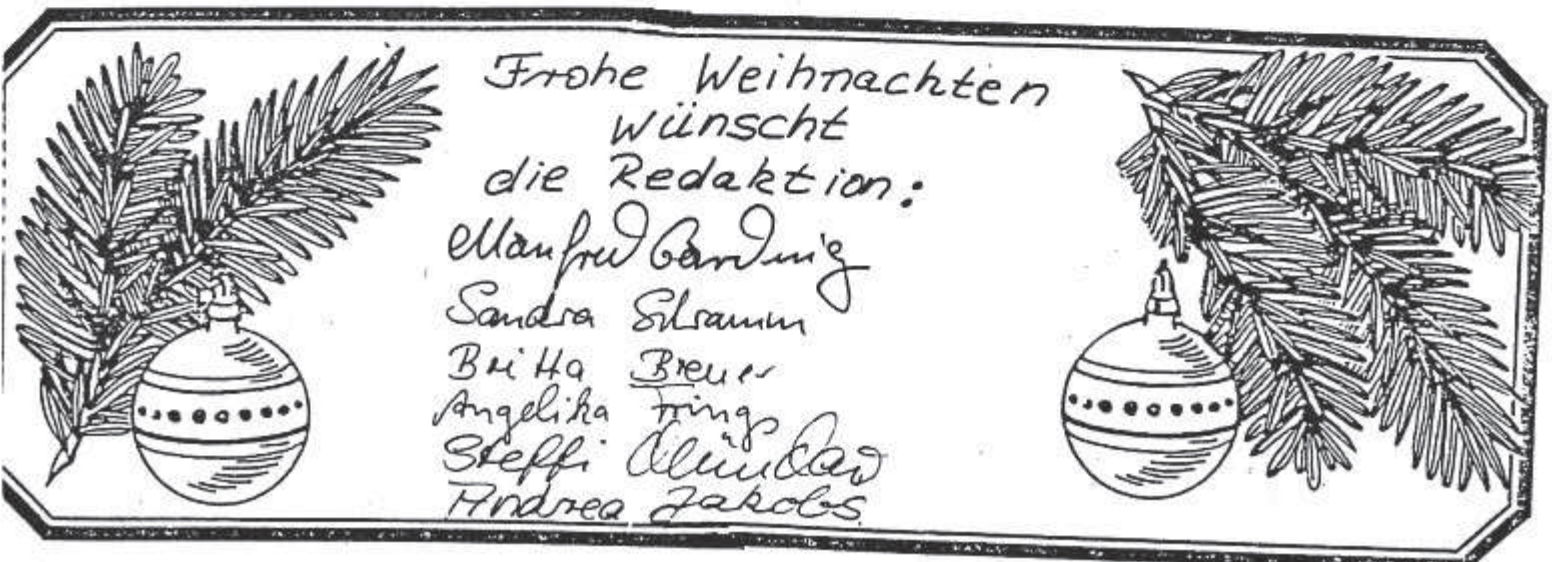 Frohe Weihnachten
wünscht
die Redaktion:
Manfred
Sandra Schramm
Britta Breuer
Angelika Frings
Steffi
Andrea Jakobs